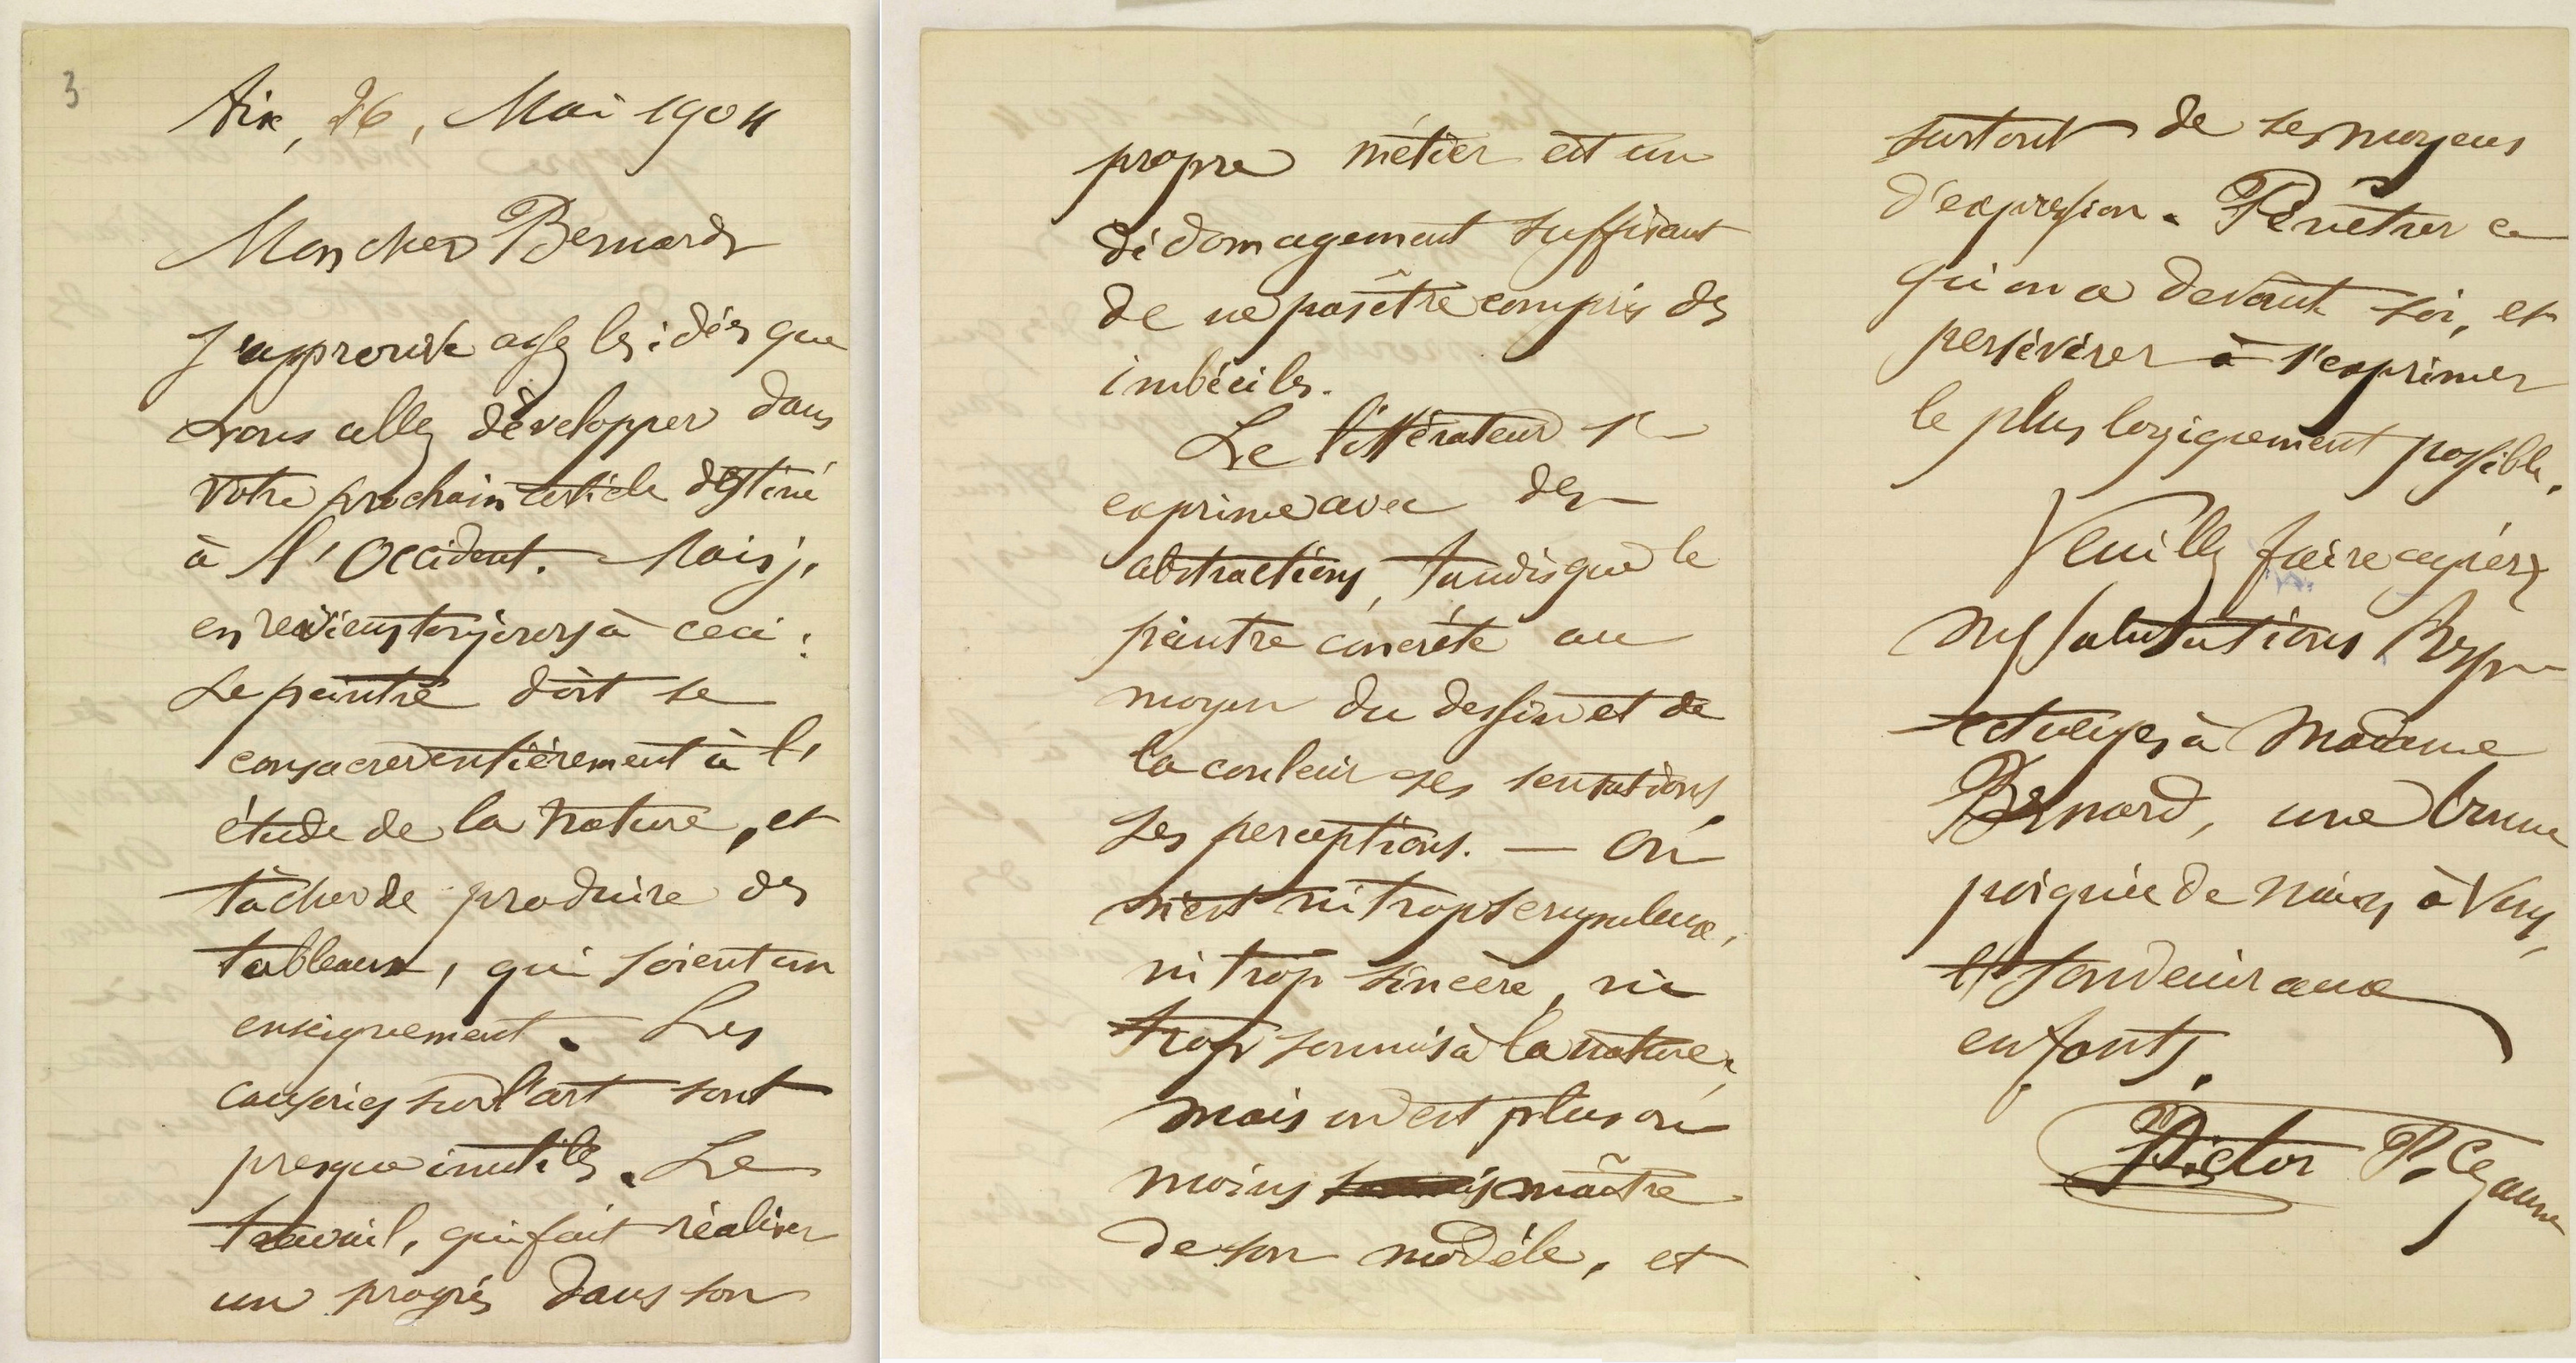 3
Aix, 26, Mai 1904
Mon cher Bernard
J'approuve assez les idées que
vous allez développer dans
votre prochain article destiné
à l'Occident. Mais j'
en reviens toujours à ceci :
Le peintre doit se
consacrer entièrement à l'
étude de la nature, et
tâcher de produire des
tableaux, qui soient un
enseignement. Les
causeries sur l'art sont
presque inutiles. Le
travail, qui fait réaliser
un progrès dans son
propre métier est un
dédomagement suffisant
de ne pas être compris des
imbéciles.
Le littérateur s'
exprime avec des
abstractions, tandis que le
peintre concrète au
moyen du dessin et de
la couleur ses sensations,
ses perceptions. — On
n'est ni trop scrupuleux,
ni trop sincère, ni
trop soumis à la nature,
mais on est plus ou
moins maître
de son modèle, et
surtout de ses moyens
d'expression. Pénétrer ce
qu'on a devant soi, et
persévérer à s'exprimer
le plus logiquement possible.
Veuillez faire agréer
mes salutations respe
ctueuses à Madame
Bernard, une bonne
poignée de mains à Vous,
et souvenir aux
enfants.
Pictor P. Cezanne